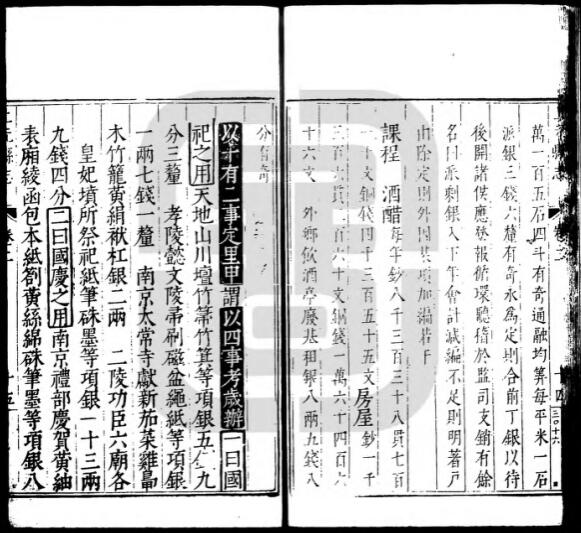 萬一百五石四斗有奇通融均算每平米一石
派銀三錢六釐有奇永為定則合前丁銀以待
後開諸侯應禁報循環聽稽於監司支銷有餘
名曰派剩銀入下年會計減編不足則明著戶
由除定則外因某項加編若干
課程 酒醋每年鈔八千三百三十八貫七百
二十文銅錢四千三百五十五文房屋鈔一千
三百六貫二百六十文銅錢一萬六千四百六
十六文 外鄉飲酒亭廢基租銀八兩九錢八
分有奇
以十有二事定里甲謂以四事考歲辦一曰國
祀之用天地山川壇竹箒竹筐等項銀五錢九
分三釐 孝陵懿文陵帚刷磁盆繩紙等項銀
一兩七錢一釐 南京太常寺獻新茄菜雞畐
木竹籠黃絹袱杠銀二兩 二陵功臣六廟各
皇妃墳所祭祀紙筆硃墨等項銀一十三兩
九錢四分二曰國慶之用南京禮部慶賀黃紬
表廂綾函包本紙劄黃絲綿硃筆墨等項銀八